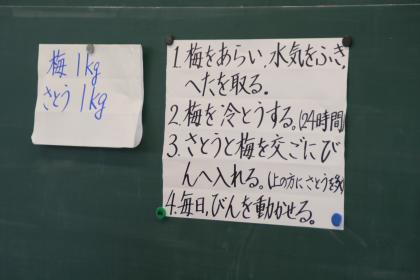 梅 1kg
さとう 1kg
1.梅をあらい、水気をふき、
へたを取る。
2.梅を冷とうする。(24時間)
3.さとうと梅を交ごにび
んへ入れる。(上の方にさとうを多く)
4.毎日、びんを動かせる。